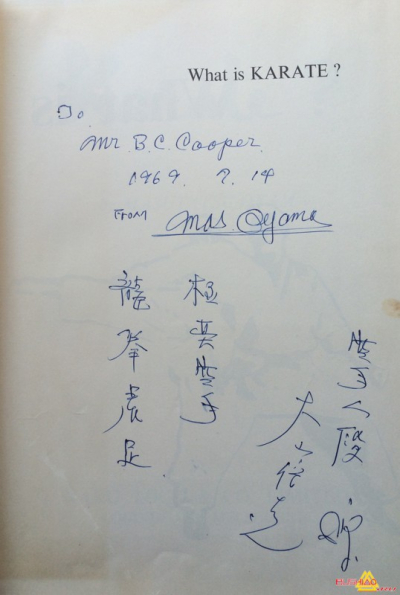 What is KARATE ?
To.
Mr. B.C. Cooper.
1969. 7. 14
From Mas. Oyama
空手八段
大山倍達
極真空手
龍拳虎足